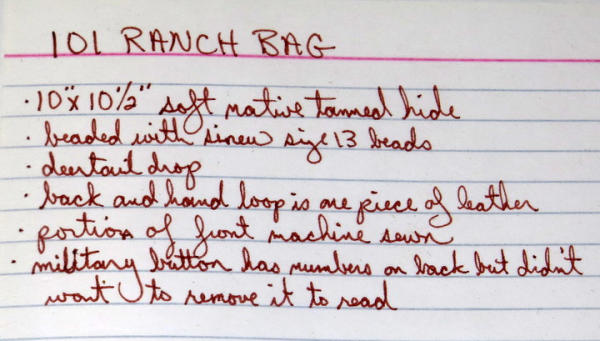 101 RANCH BAG
· 10"x 10½" soft native tanned hide
· beaded with sinew size 13 beads
· deertail drop
· back and hand loop is one piece of leather
· portion of front machine sewn
· military button has numbers on back but didn't
want to remove it to read